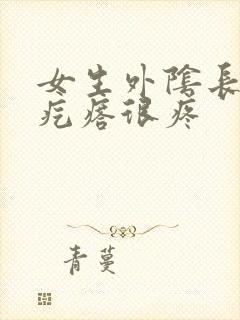 女生外陰長
疙瘩很疼
青蔓